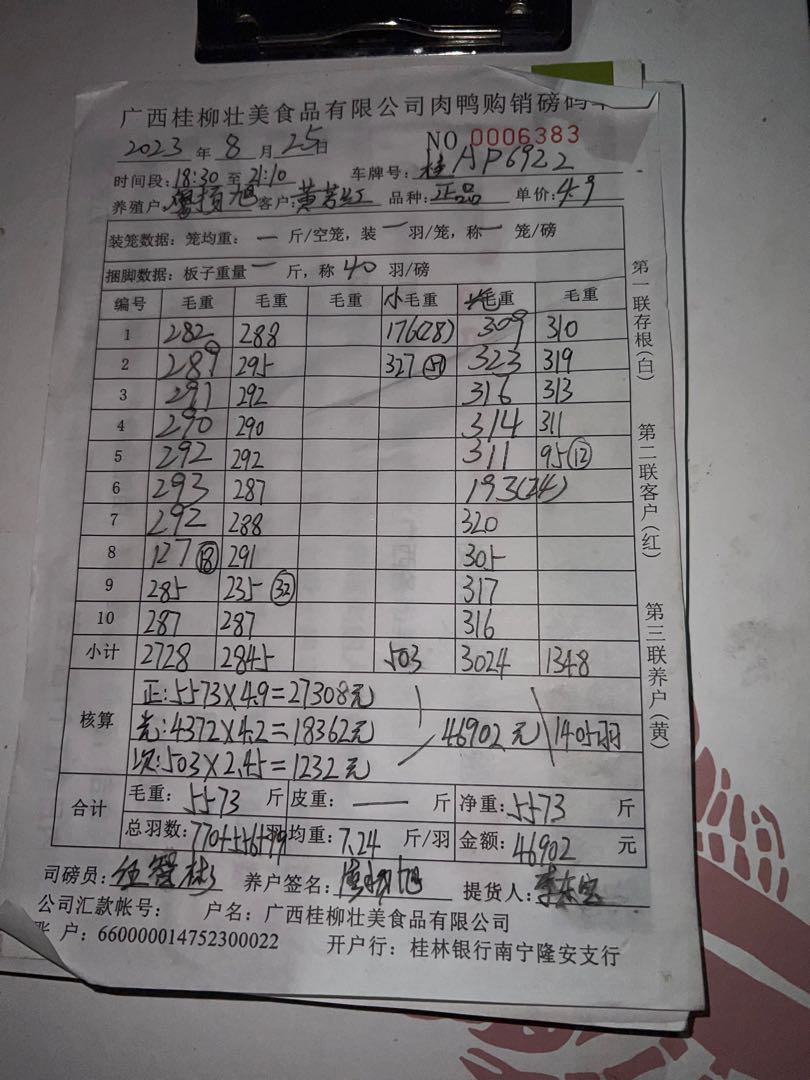 广西桂柳壮美食品有限公司肉鸭购销磅码单
2023 年 8 月 25 日 NO 0006383
时间段: 18:30 至 21:10 车牌号: 桂AP6922
养殖户: 旭 客户: 黄芳红 品种: 正品 单价: 4.9
装笼数据: 笼均重: 一 斤/空笼, 装 一 羽/笼, 称 一 笼/磅
捆脚数据: 板子重量 一 斤, 称 40 羽/磅
编号 毛重 毛重 毛重 小毛重 毛重 毛重
1 282 288 176(28) 309 310
2 289 295 327 323 319
3 291 292 316 313
4 290 290 314 311
5 292 292 311 95(12)
6 293 287 193(24)
7 292 288 320
8 127(18) 291 305
9 285 235(32) 317
10 287 287 316
小计 2728 2845 503 3024 1348
核算
正:5573×4.9=27308元
光:4372×4.2=18362元 46902元 1405羽
次:503×2.45=1232元
合计
毛重: 5573 斤 皮重: — 斤 净重: 5573 斤
总羽数: 770+556+79 羽 均重: 7.24 斤/羽 金额: 46902 元
司磅员: 伍 彬 养户签名: 旭 提货人: 李东
公司汇款帐号: 户名: 广西桂柳壮美食品有限公司
账 户: 660000014752300022 开户行: 桂林银行南宁隆安支行
第一联存根(白)
第二联客户(红)
第三联养户(黄)